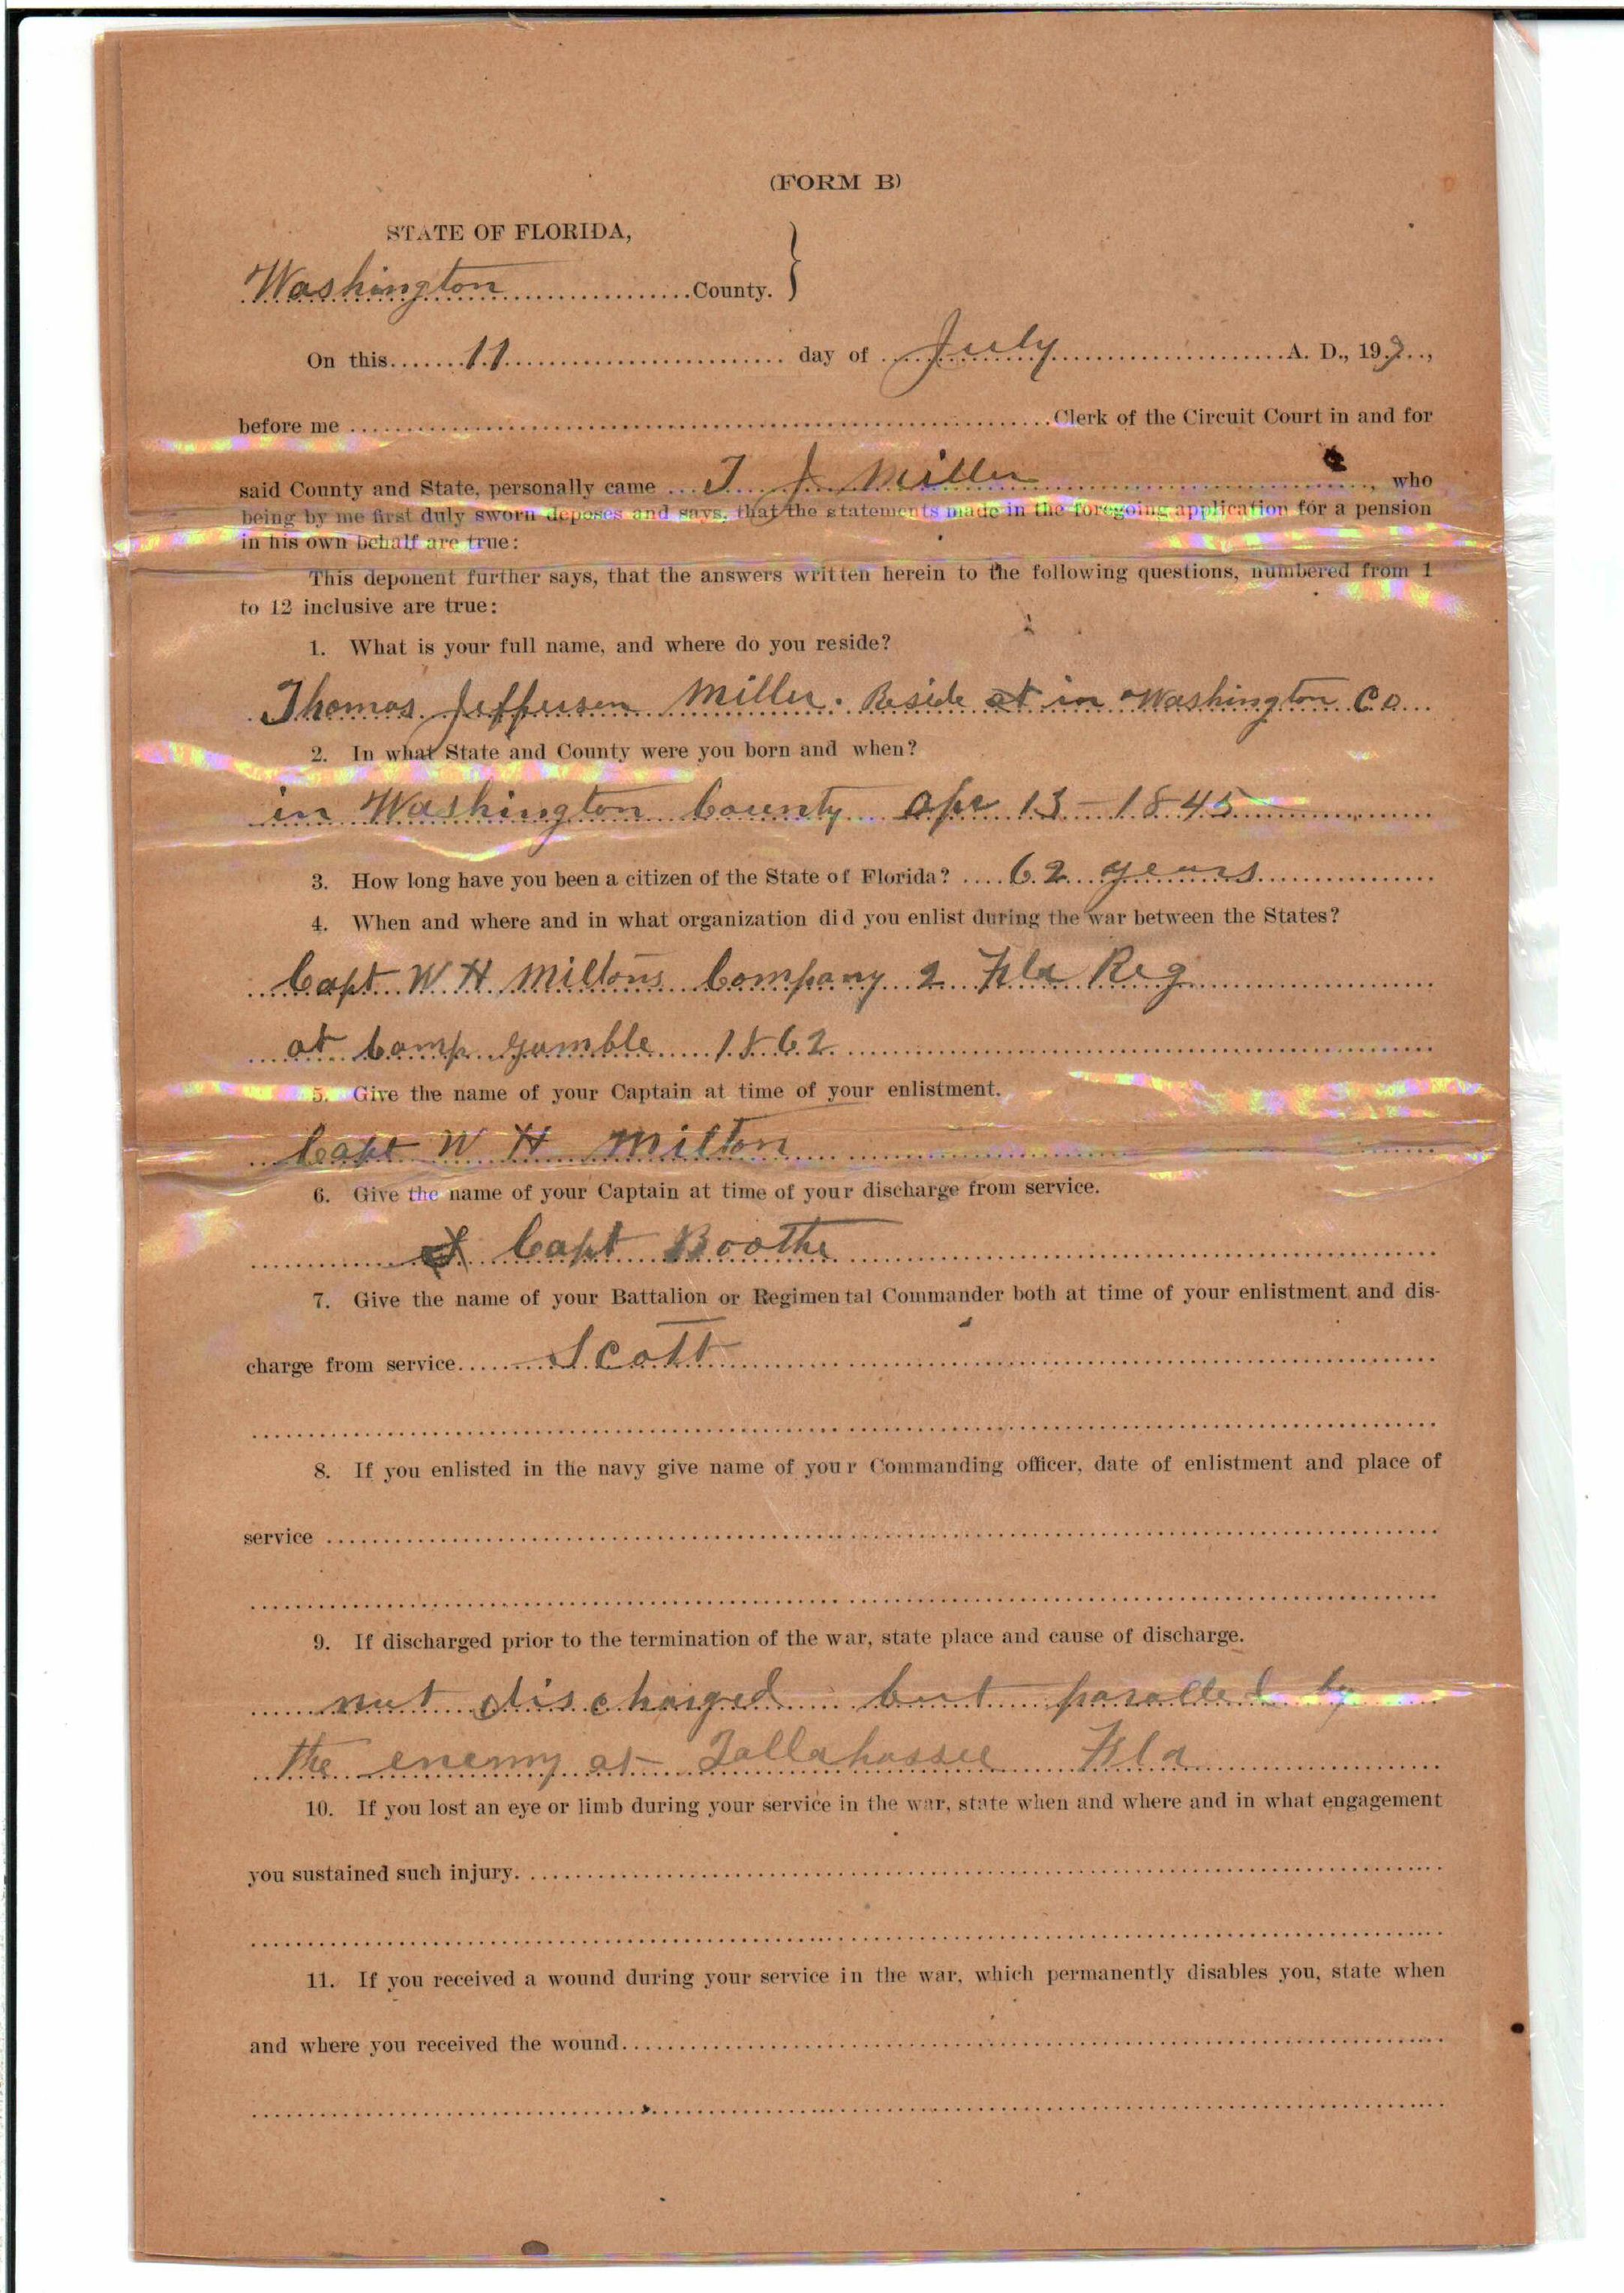 (FORM B)
STATE OF FLORIDA,
Washington County.
On this 11 day of July A. D., 19
before me Clerk of the Circuit Court in and for
said County and State, personally came T J Miller, who
being by me first duly sworn deposes and says, that the statements made in the foregoing application for a pension
in his own behalf are true:
This deponent further says, that the answers written herein to the following questions, numbered from 1
to 12 inclusive are true:
1. What is your full name, and where do you reside?
Thomas Jefferson Miller. Reside at in Washington Co
2. In what State and County were you born and when?
in Washington County Apr 13-1845
3. How long have you been a citizen of the State of Florida? 62 years
4. When and where and in what organization did you enlist during the war between the States?
Capt W H Miltons Company 2 Fla Reg
at Camp Gamble 1862
5. Give the name of your Captain at time of your enlistment.
Capt W H Milton
6. Give the name of your Captain at time of your discharge from service.
Capt Boothe
7. Give the name of your Battalion or Regimental Commander both at time of your enlistment and dis-
charge from service Scott
8. If you enlisted in the navy give name of your Commanding officer, date of enlistment and place of
service
9. If discharged prior to the termination of the war, state place and cause of discharge.
not discharged but parolled by
the enemy at Tallahassee Fla
10. If you lost an eye or limb during your service in the war, state when and where and in what engagement
you sustained such injury.
11. If you received a wound during your service in the war, which permanently disables you, state when
and where you received the wound